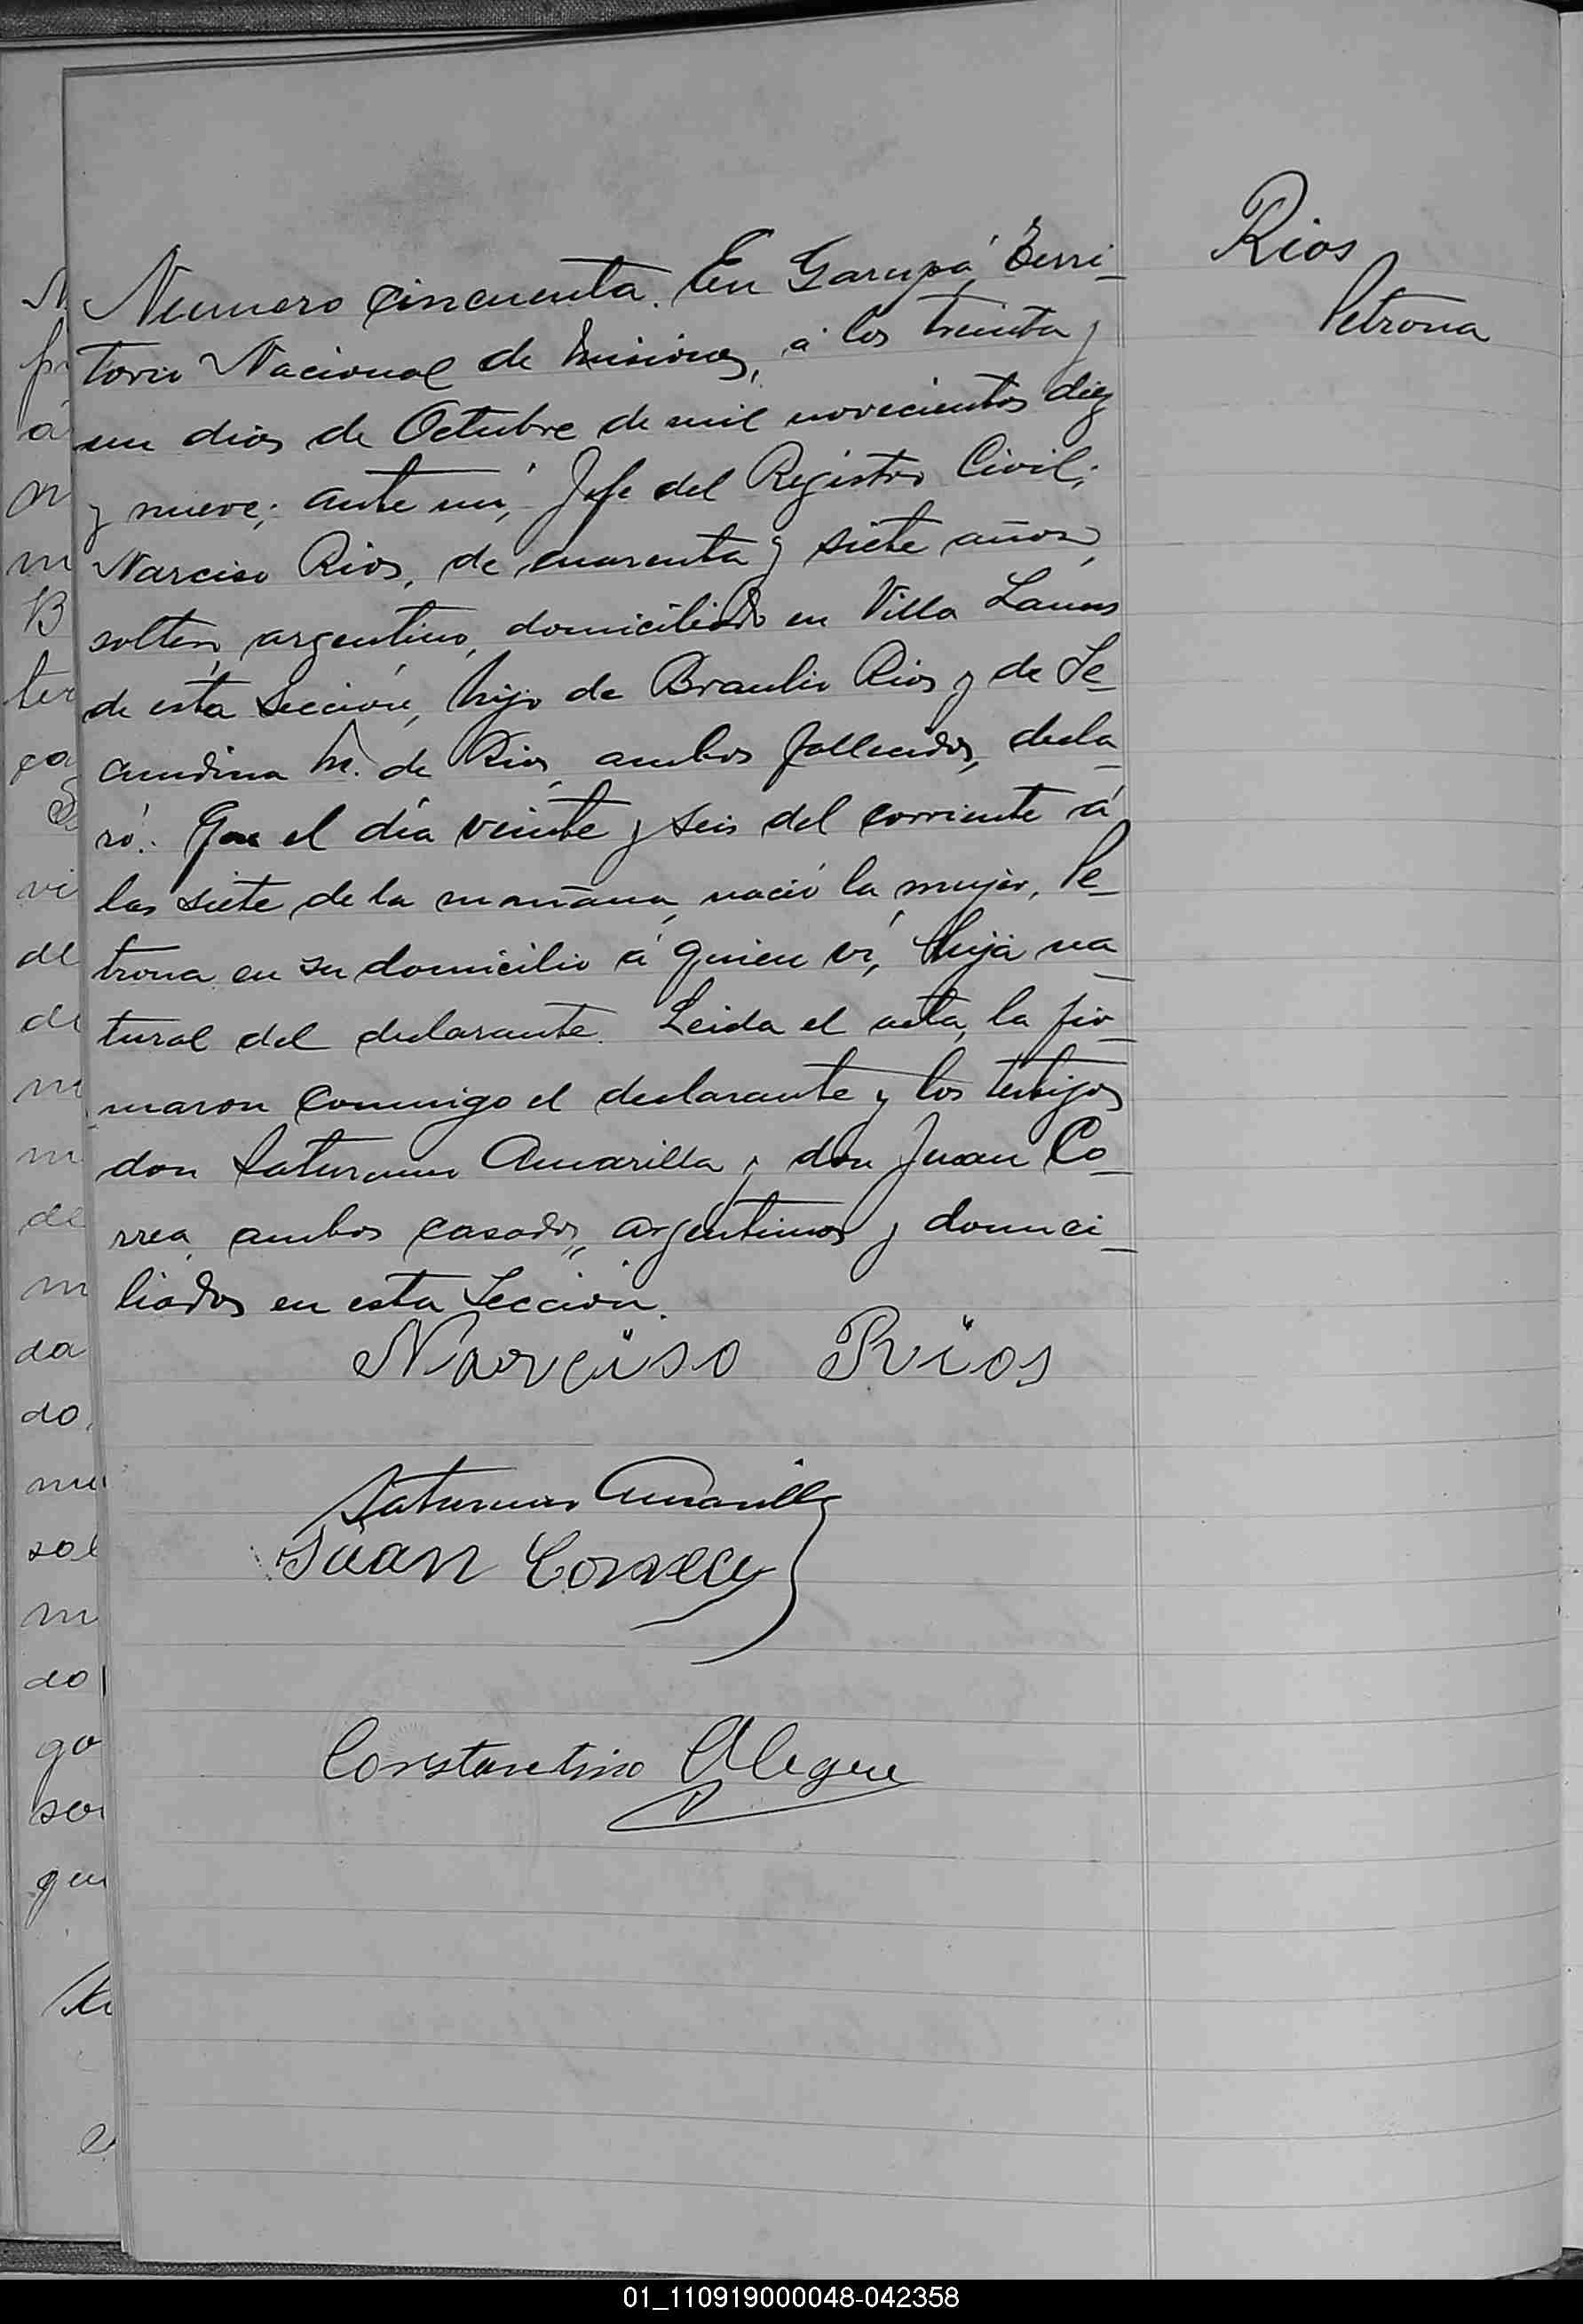 Rios
Petrona
Numero cincuenta. En Garupá, Terri-
torio Nacional de Misiones, á los treinta y
un dias de Octubre de mil novecientos diez
y nueve; ante mí, Jefe del Registro Civil;
Narciso Rios, de cuarenta y siete años,
soltero, argentino, domiciliado en Villa Lanus
de esta Sección, hijo de Braulio Rios y de
M. de Rios, ambos fallecidos, decla-
ró: Que el día veinte y seis del corriente á
las siete de la mañana, nació la mujer, Pe-
trona en su domicilio á quien ví, hija na-
tural del declarante. Leida el acta, la fir-
maron conmigo el declarante y los testigos
don Saturnino Amarilla y don Juan Co-
rrea, ambos casados, argentinos y domici-
liados en esta Sección.
Narciso Rios
Saturnino Amarilla
Juan Correa
Constantino Alegre
01_110919000048-042358